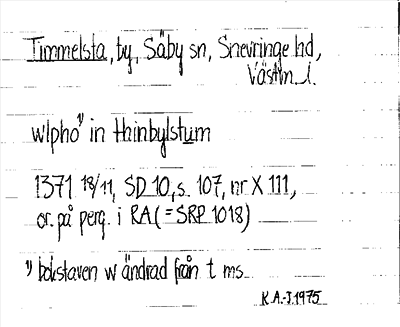 Timmelsta, by, Säby sn, Snevringe hd,
Västm. l.
wlpho¹⁾ in thinbylstum
1371 18/11, SD 10, s. 107, nr X 111,
or. på perg. i RA (= SRP 1018)
¹⁾ bokstaven w ändrad från t ms
K A.-J. 1975